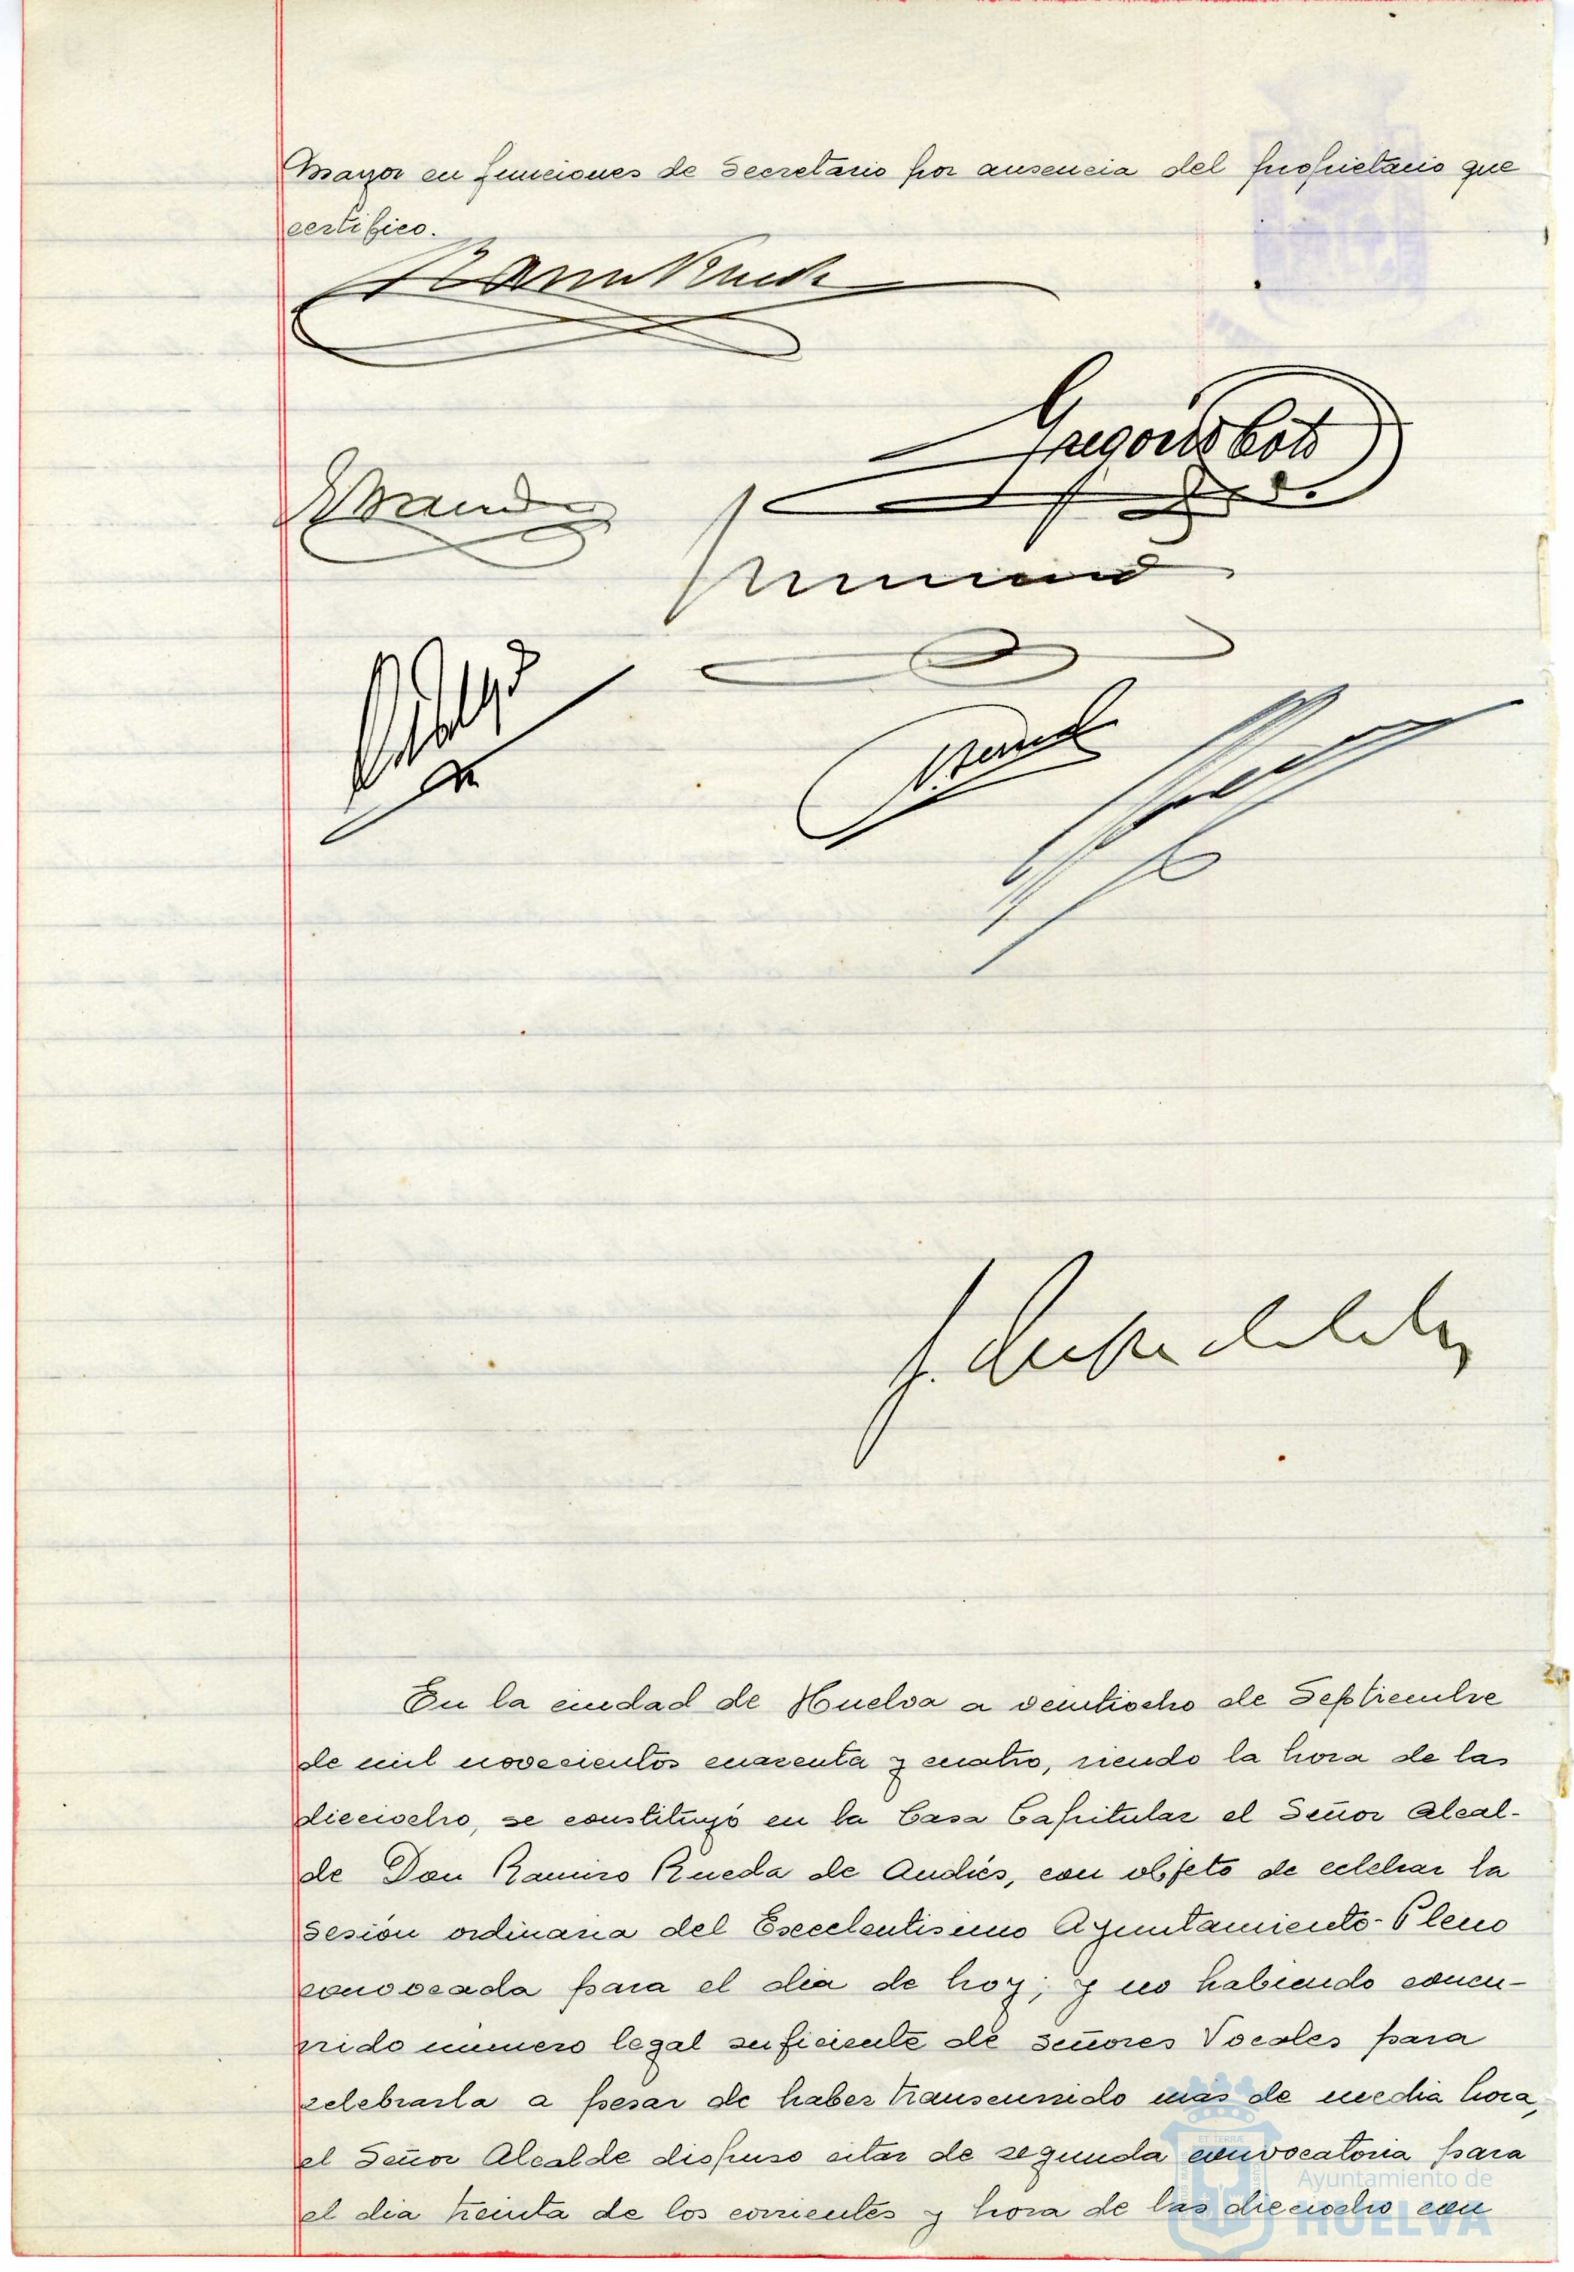 Mayor en funciones de Secretario por ausencia del propietario que
certifico.
Gregorio
En la ciudad de Huelva a veintiocho de Septiembre
de mil novecientos cuarenta y cuatro, siendo la hora de las
dieciocho, se constituyó en la Casa Capitular el Señor Alcal-
de Don Ramiro Rueda de Andrés, con objeto de celebrar la
sesión ordinaria del Excelentisimo Ayuntamiento-Pleno
convocada para el dia de hoy; y no habiendo concu-
rrido número legal suficiente de señores Vocales para
celebrarla a pesar de haber transcurrido más de media hora,
el Señor Alcalde dispuso citar de segunda convocatoria para
el dia treinta de los corrientes y hora de las dieciocho con
Ayuntamiento de
HUELVA